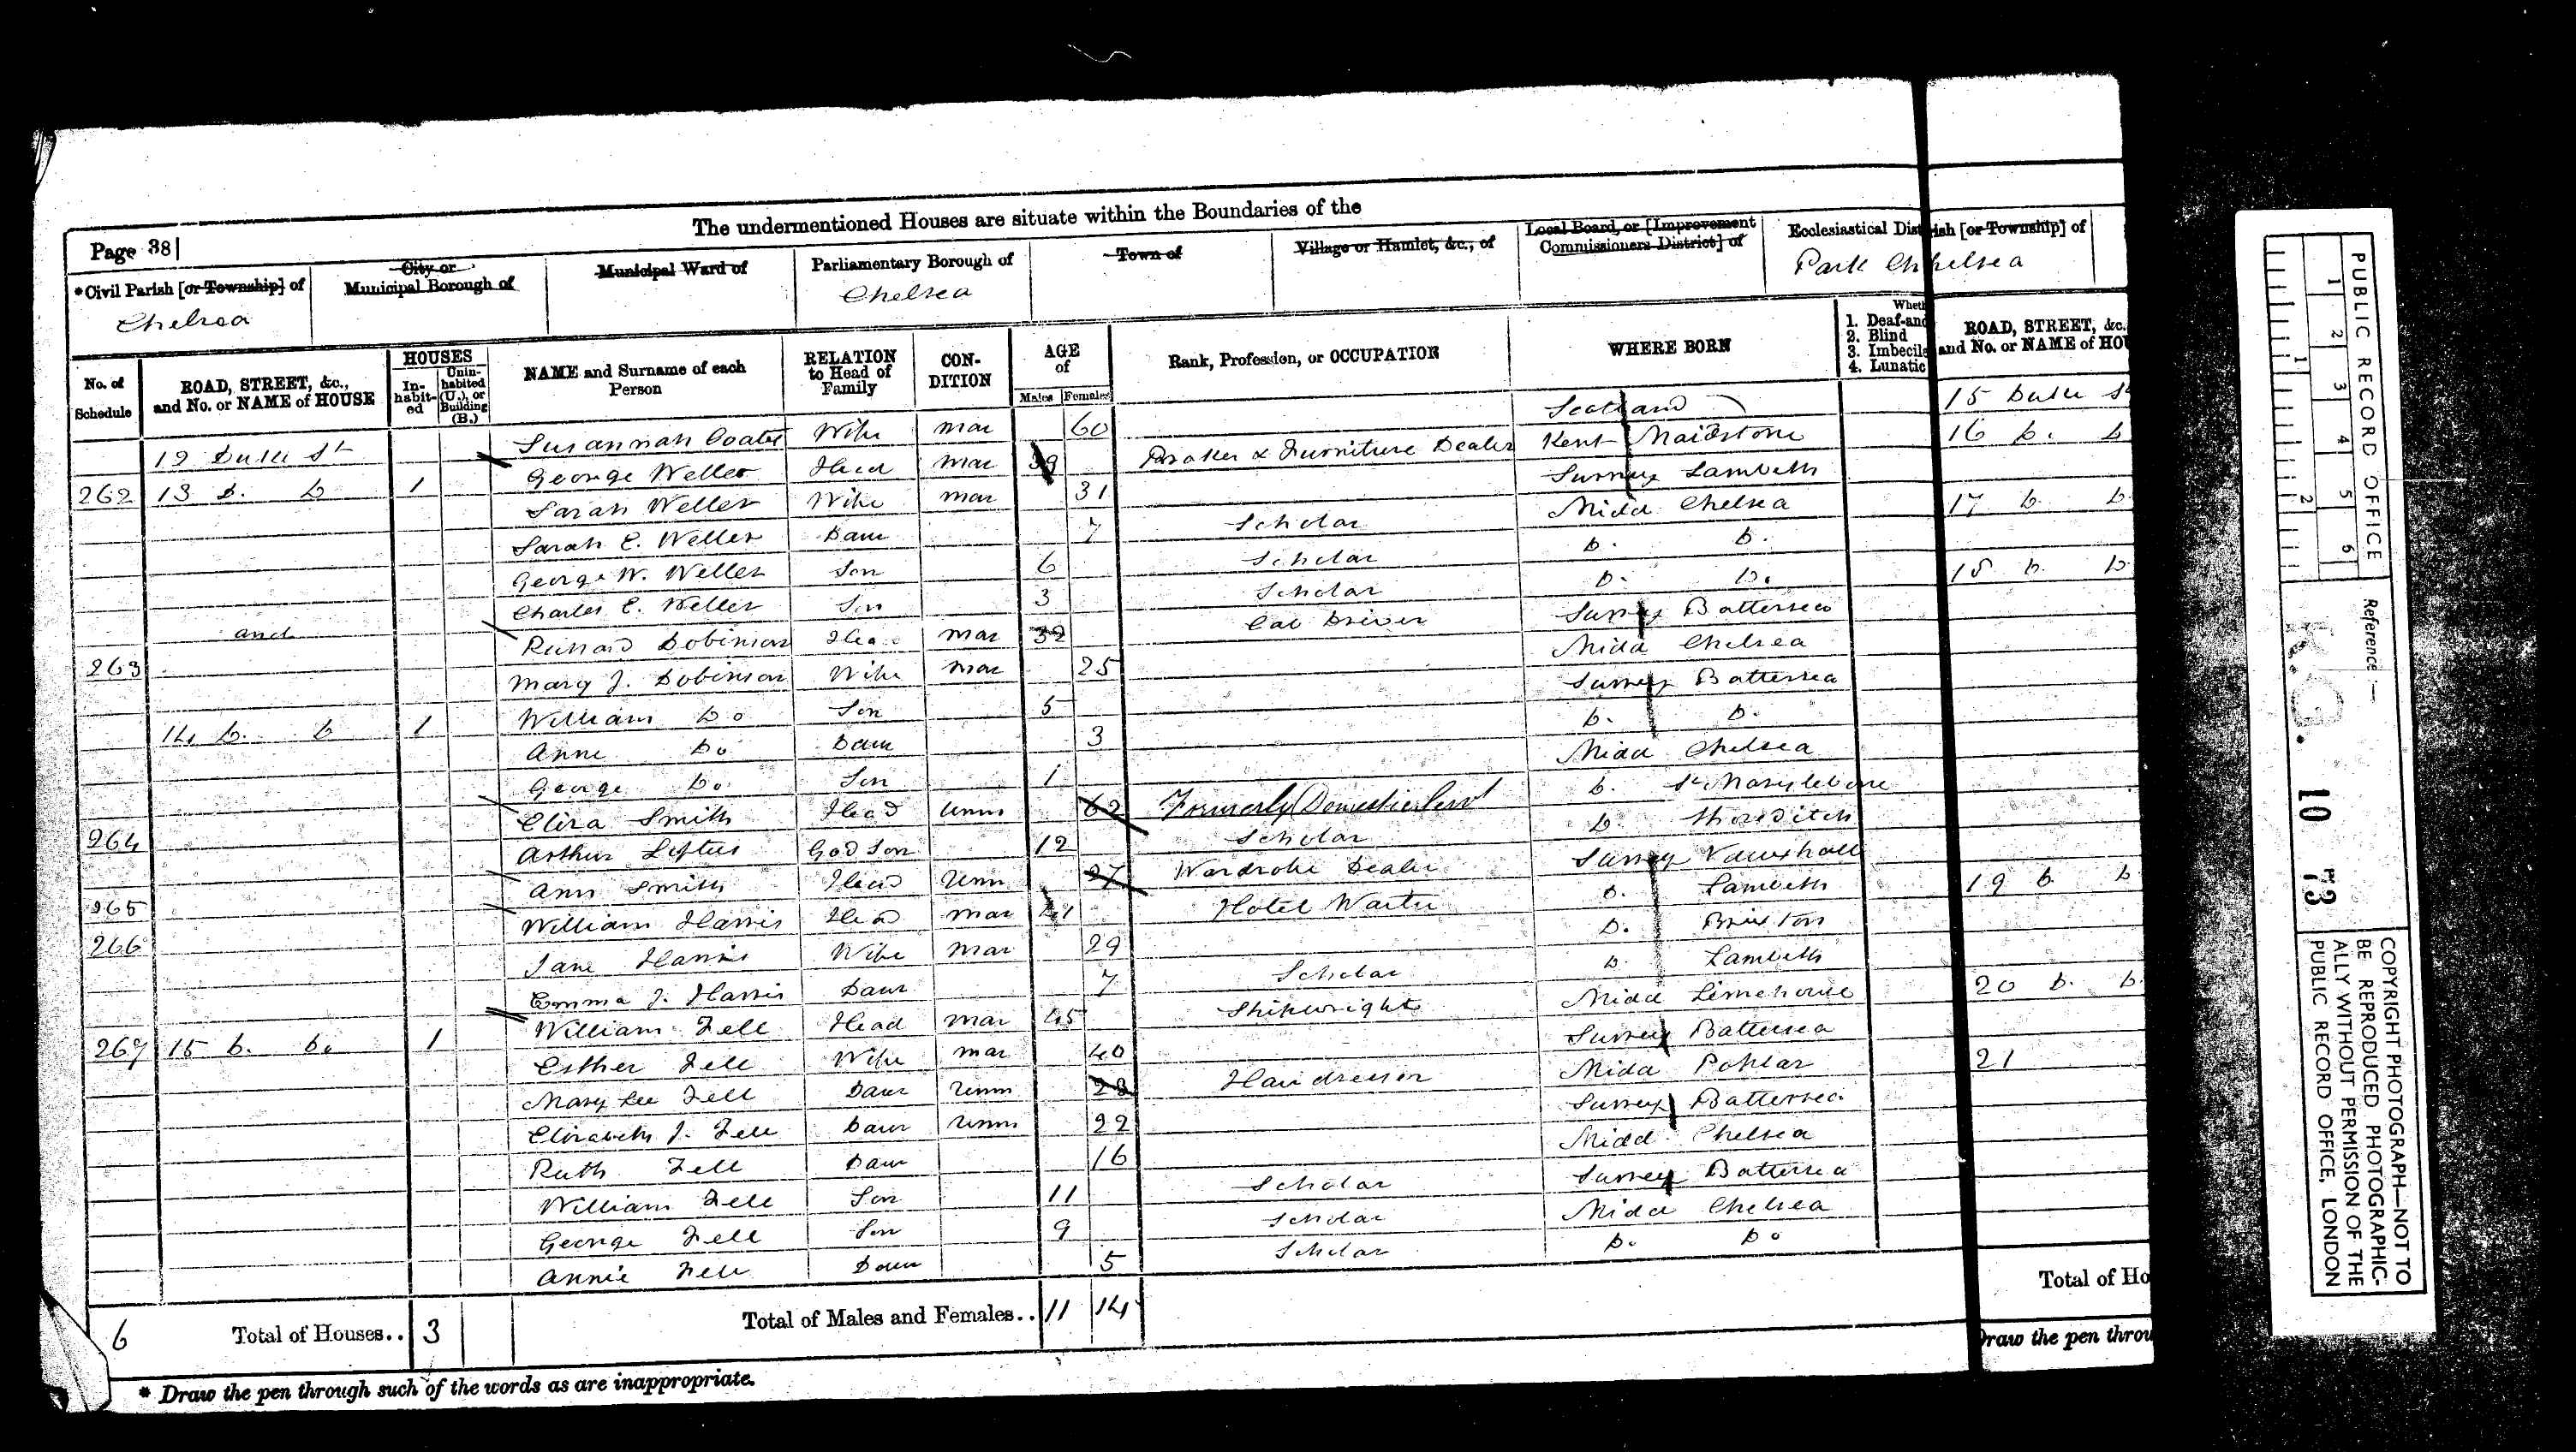 The undermentioned Houses are situate within the Boundaries of the
Page 38
*Civil Parish [or Township] of
Chelsea
City or
Municipal Borough of
Municipal Ward of
Parliamentary Borough of
Chelsea
Town of
Village or Hamlet, &c., of
Local Board, or [Improvement
Commissioners District] of
Ecclesiastical Dist
Park Ch
rish [or Township] of
helsea
No. of
Schedule
ROAD, STREET, &c.,
and No. or NAME of HOUSE
HOUSES
In-
habit-
ed
Unin-
habited
(U.), or
Building
(B.)
NAME and Surname of each
Person
RELATION
to Head of
Family
CON-
DITION
AGE
of
Males Females
Rank, Profession, or OCCUPATION
WHERE BORN
Whet
1. Deaf-and
2. Blind
3. Imbecile
4. Lunatic
ROAD, STREET, &c.
and No. or NAME of HOU
12 Duke St Susannah Coates Wife Mar 60 Scotland
262 13 D. D 1 George Weller Head Mar 39 Broker & Furniture Dealer Kent Maidstone
Sarah Weller Wife Mar 31 Surrey Lambeth
Sarah E. Weller Daur 7 Scholar Midd Chelsea
George W. Weller Son 6 Scholar D. D.
Charles E. Weller Son 3 Scholar D. D.
263 and Richard Dobinson Head Mar 32 Cab Driver Surrey Battersea
Mary J. Dobinson Wife Mar 25 Midd Chelsea
William Do Son 5 Surrey Battersea
14 D. D 1 Anne Do Daur 3 D. D.
George Do. Son 1 Midd Chelsea
264 Eliza Smith Head Unm 62 Formerly Domestic Servt D. St Marylebone
Arthur Loftus God Son 12 Scholar D. Shoreditch
265 Ann Smith Head Unm 27 Wardrobe Dealer Surrey Vauxhall
266 William Harris Head Mar 41 Hotel Waiter D. Lambeth
Jane Harris Wife Mar 29 D. Brixton
Emma J. Harris Daur 7 Scholar D. Lambeth
267 15 D. Do 1 William Fell Head Mar 45 Shipwright Midd Limehouse
Esther Fell Wife Mar 40 Surrey Battersea
Mary Lee Fell Daur Unm 23 Hairdresser Midd Poplar
Elizabeth J. Fell Daur Unm 22 Surrey Battersea
Ruth Fell Daur 16 Midd Chelsea
William Fell Son 11 Scholar Surrey Battersea
George Fell Son 9 Scholar Midd Chelsea
Annie Fell Daur 5 Scholar D. Do
15 Duke St
16 D. D
17 D. D.
18 D. D.
19 D D
20 D. D.
21
6 Total of Houses.. 3 Total of Males and Females.. 11 14
Total of Ho
* Draw the pen through such of the words as are inappropriate.
Draw the pen throu
PUBLIC RECORD OFFICE
1 2 3 4 5 6
1 2
Reference:—
R.G. 10 73
COPYRIGHT PHOTOGRAPH—NOT TO
BE REPRODUCED PHOTOGRAPHIC-
ALLY WITHOUT PERMISSION OF THE
PUBLIC RECORD OFFICE, LONDON